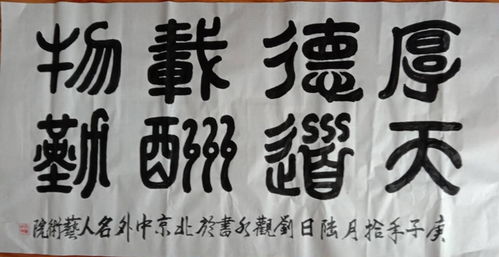 厚德載物
天道酬勤
庚子年拾月陸日劉觀水書於北京中外名人藝術院